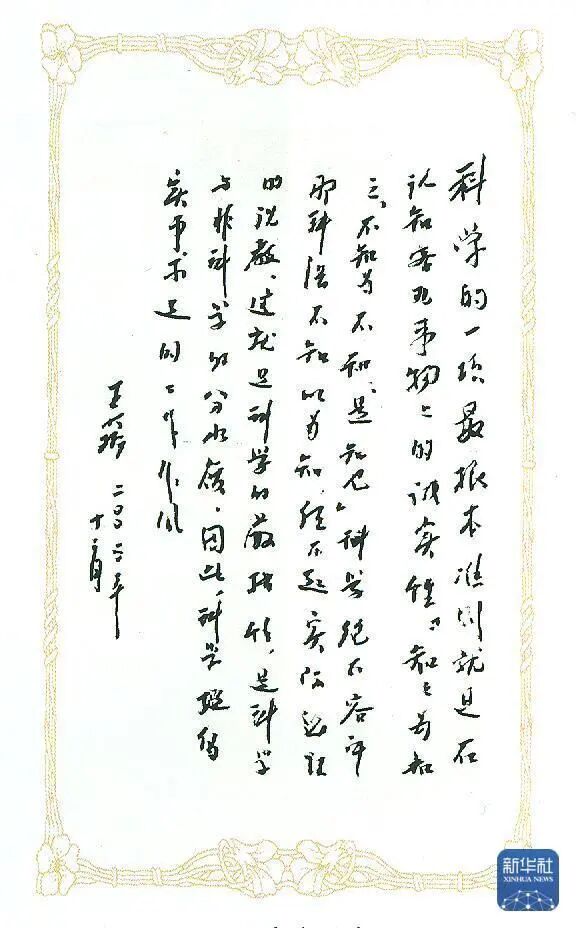 科学的一项最根本准则就是在
认知客观事物上的诚实性，“知之为知
之，不知为不知，是知也”科学绝不容许
那种强不知以为知，经不起实际验证
的说教，这就是科学的严格性，是科学
与非科学的分水岭。因此，科学提倡
实事求是的工作作风
王
年
月
新华社
XINHUA NEWS